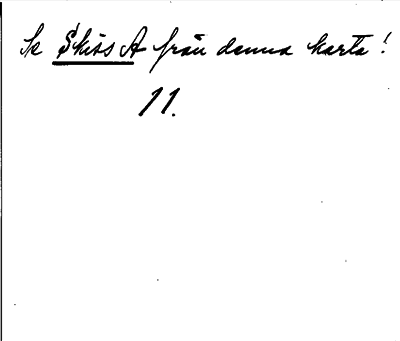 Se Skiss A från denna karta!
11.